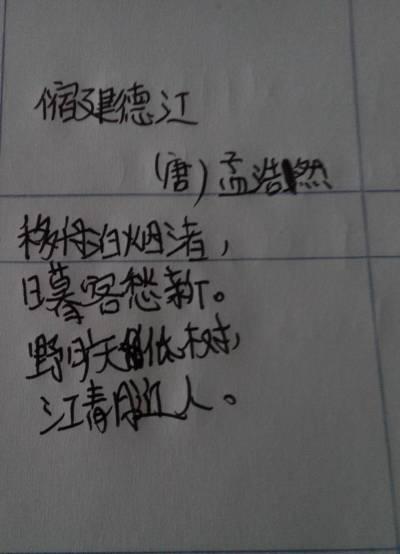 宿建德江
(唐)孟浩然
移舟泊烟渚,
日暮客愁新。
野旷天低树,
江青月近人。